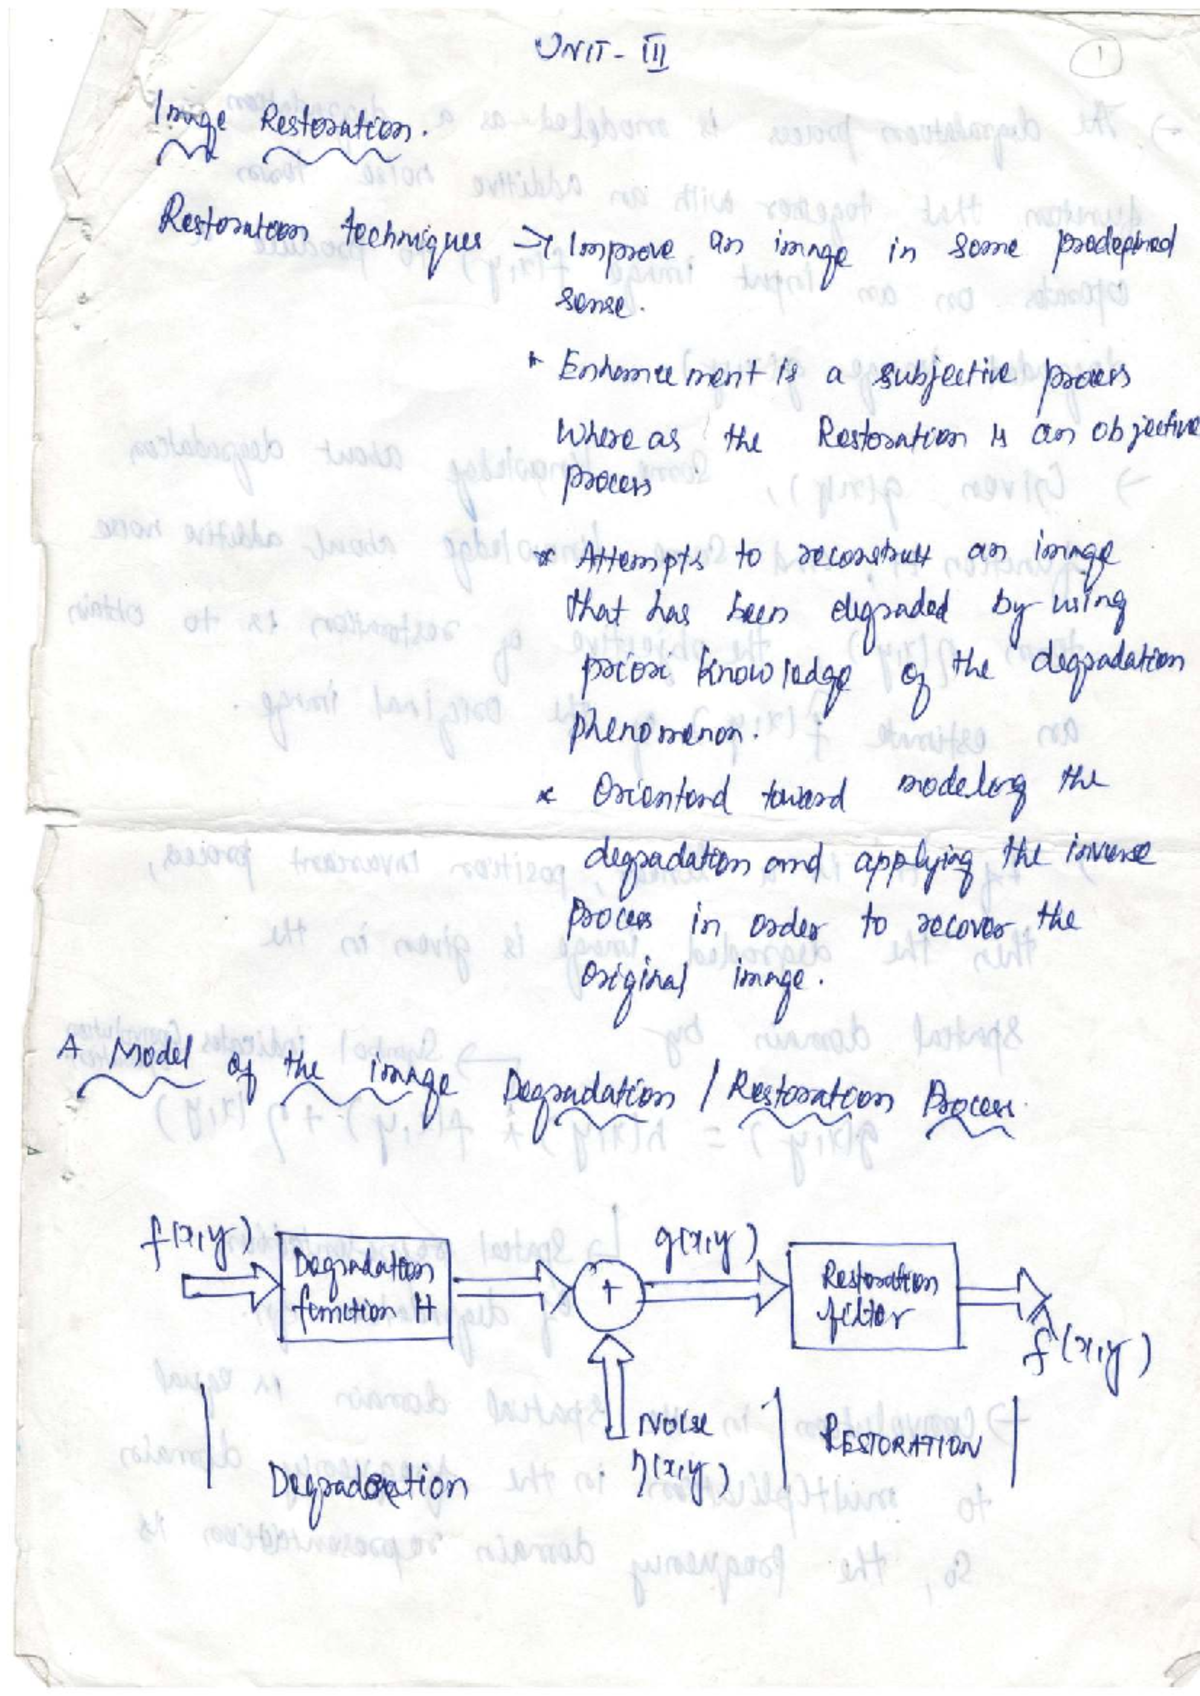 UNIT - III
1
Image Restoration.
Restoration techniques → Improve an image in some predefined
sense.
* Enhancement is a subjective process
Where as the Restoration is an objective
process
* Attempts to reconstruct an image
that has been degraded by using
priori knowledge of the degradation
phenomenon.
* Oriented toward modeling the
degradation and applying the inverse
process in order to recover the
original image.
A Model of the image Degradation / Restoration Process.
f(x,y)
Degradation
function H
+
g(x,y)
Restoration
filter
f^(x,y)
Noise
η(x,y)
Degradation
RESTORATION